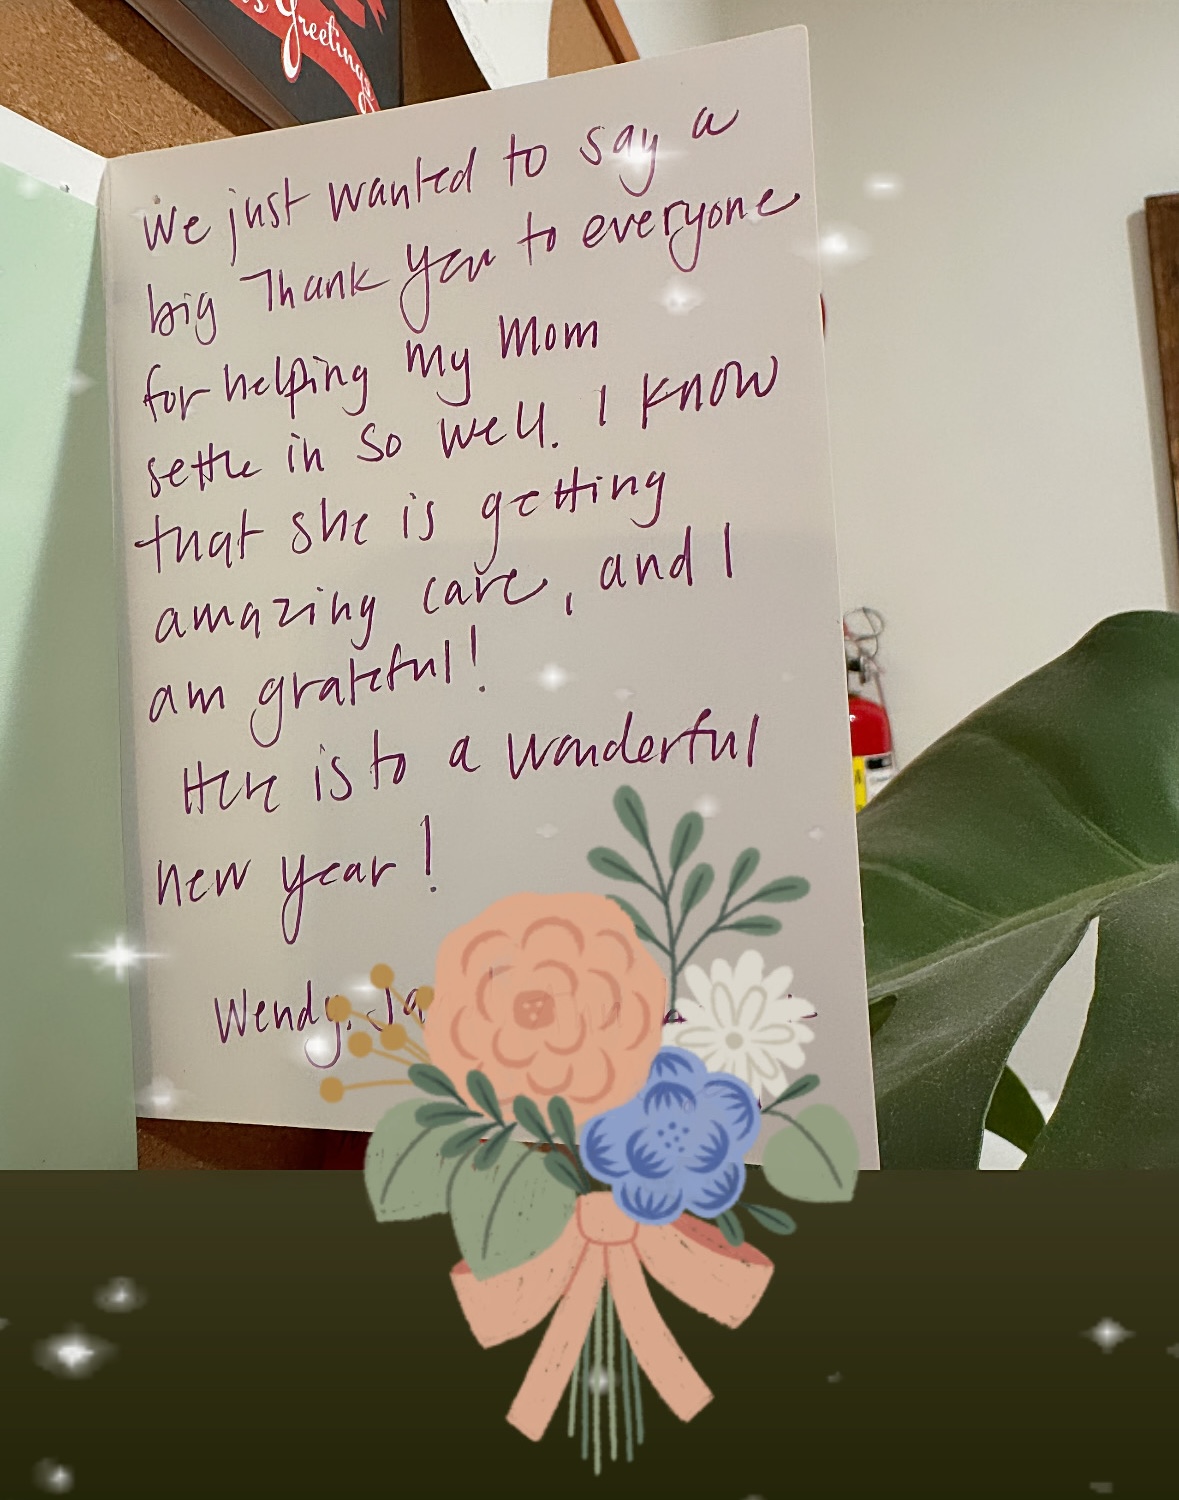 Greetings
We just wanted to say a
big Thank you to everyone
for helping my Mom
settle in so well. I know
that she is getting
amazing care, and I
am grateful!
Here is to a wonderful
new year!
Wendy,